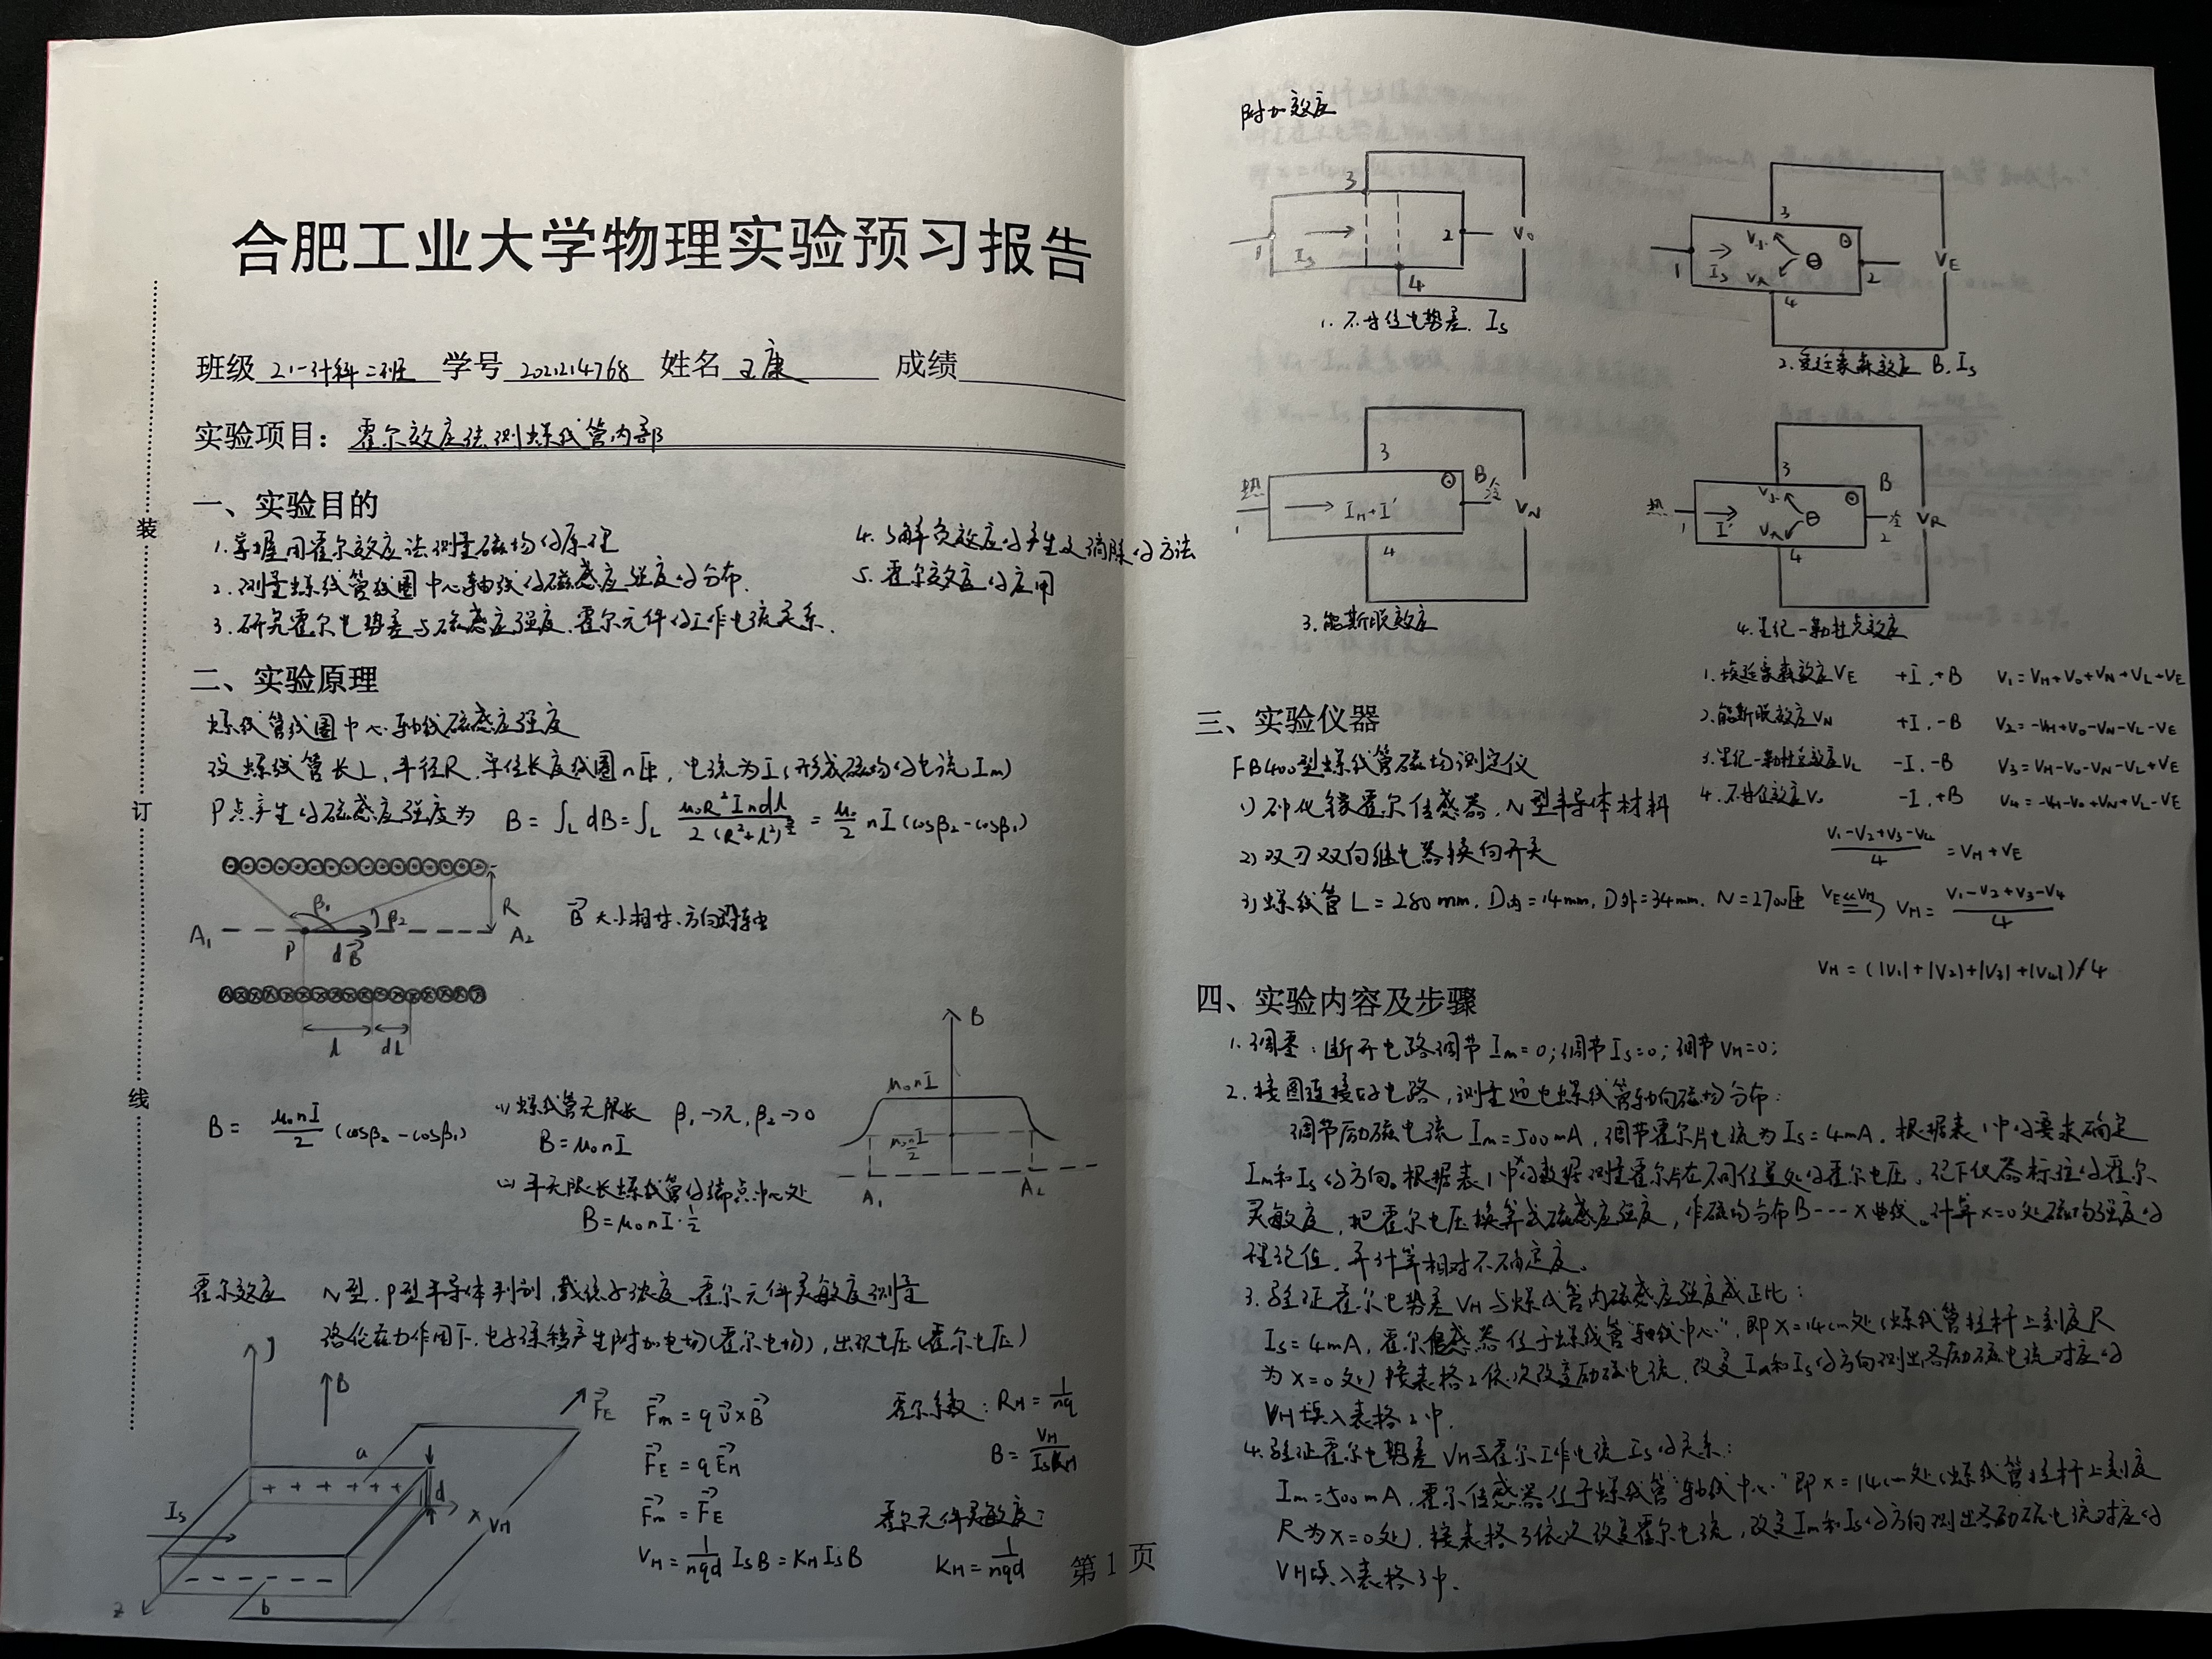 合肥工业大学物理实验预习报告
班级 21-计科二班 学号 2021214768 姓名 王康 成绩
实验项目： 霍尔效应法测螺线管内部
一、实验目的
1.掌握用霍尔效应法测量磁场的原理
2.测量螺线管线圈中心轴线的磁感应强度的分布.
3.研究霍尔电势差与磁感应强度.霍尔元件的工作电流关系.
4.了解负效应的产生及消除的方法
5.霍尔效应的应用
二、实验原理
螺线管线圈中心轴线磁感应强度
设螺线管长L,半径R.单位长度线圈n匝,电流为I(形成磁场的电流Im)
P点产生的磁感应强度为 B=∫L dB=∫L μ₀R²Indl / 2(R²+l²)^(3/2) = μ₀/2 nI(cosβ₂-cosβ₁)
β₁ β₂ R
A₁ P dB A₂
B大小相等.方向
l dl
B= μ₀nI/2 (cosβ₂-cosβ₁)
(1)螺线管无限长 β₁→π,β₂→0
B=μ₀nI
(2)半无限长螺线管的端点中心处
B=μ₀nI·1/2
B
μ₀nI
μ₀nI/2
A₁ A₂
霍尔效应 N型.P型半导体判别,载流子浓度.霍尔元件灵敏度测量
洛伦兹力作用下.电子漂移产生附加电场(霍尔电场),出现电压(霍尔电压)
B FE
a + + + + + + d
Is x VH
- - - - - -
z b
Fm=qv×B
FE=qEH
Fm=FE
VH= 1/nqd IsB=KHIsB
霍尔系数:RH=1/nq
B=VH/IsKH
霍尔元件灵敏度:
KH=1/nqd
第1页
附加效应
3 1 Is 2 V₀ 4
1.不等位电势差. Is
3 1 Is 2 VE 4
2.爱廷豪森效应 B.Is
热 1 3 B 冷 VN 4
3.能斯脱效应
热 1 I' 3 B 冷 2 VR 4
4.里纪-勒杜克效应
1.埃廷豪森效应VE +I.+B V₁=VH+V₀+VN+VL+VE
2.能斯脱效应VN +I.-B V₂=-VH+V₀-VN-VL-VE
3.里纪-勒杜克效应VL -I.-B V₃=VH-V₀-VN-VL+VE
4.不等位效应V₀ -I.+B V₄=-VH-V₀+VN+VL-VE
V₁-V₂+V₃-V₄ / 4 =VH+VE
VE≪VH ⟹ VH= V₁-V₂+V₃-V₄ / 4
VH=(|V₁|+|V₂|+|V₃|+|V₄|)/4
三、实验仪器
FB400型螺线管磁场测定仪
1)砷化镓霍尔传感器.N型半导体材料
2)双刀双向继电器换向开关
3)螺线管L=280mm.D内=14mm,D外=34mm.N=2700匝
四、实验内容及步骤
1.调零:断开电路调节Im=0;调节Is=0;调节VH=0;
2.按图连接好电路,测量通电螺线管轴向磁场分布:
调节励磁电流Im=500mA,调节霍尔片电流为Is=4mA.根据表1中的要求确定
Im和Is的方向。根据表1中的数据测量霍尔片在不同位置处的霍尔电压.记下仪器标注的霍尔
灵敏度,把霍尔电压换算成磁感应强度,作磁场分布B---X曲线。计算x=0处磁场强度的
理论值,并计算相对不确定度。
3.验证霍尔电势差VH与螺线管内磁感应强度成正比:
Is=4mA,霍尔传感器位于螺线管"轴线中心",即X=14cm处(螺线管拉杆上刻度尺
为X=0处)按表格2依次改变励磁电流,改变Im和Is的方向测出各励磁电流对应的
VH填入表格2中.
4.验证霍尔电势差VH与霍尔工作电流Is的关系:
Im=500mA,霍尔传感器位于螺线管"轴线中心"即X=14cm处(螺线管拉杆上刻度
尺为X=0处),按表格3依次改变霍尔电流,改变Im和Is的方向测出各励磁电流对应的
VH填入表格3中.
装
订
线